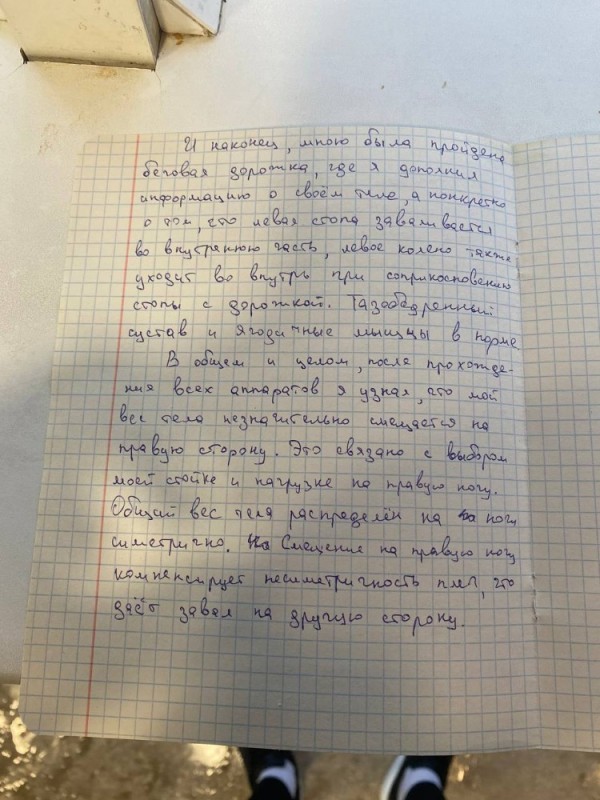 И наконец, мною была пройдена
беговая дорожка, где я дополнил
информацию о своём теле, а конкретно
о том, что левая стопа заваливается
во внутреннюю часть, левое колено также
уходит во внутрь при соприкосновении
стопы с дорожкой. Тазобедренный
сустав и ягодичные мышцы в норме
В общем и целом, после прохожде-
ния всех аппаратов я узнал, что мой
вес тела незначительно смещается на
правую сторону. Это связано с выбором
моей стойке и нагрузке на правую ногу.
Общий вес тела распределён на ноги
симетрично. Смещение на правую ногу
компенсирует несиметричность плеч, что
даёт завал на другую сторону.